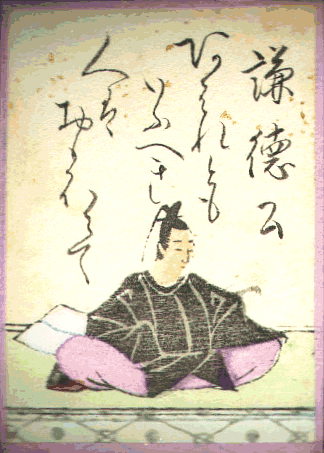 謙徳公
あはれとも
いふへき
人は
おもほえて